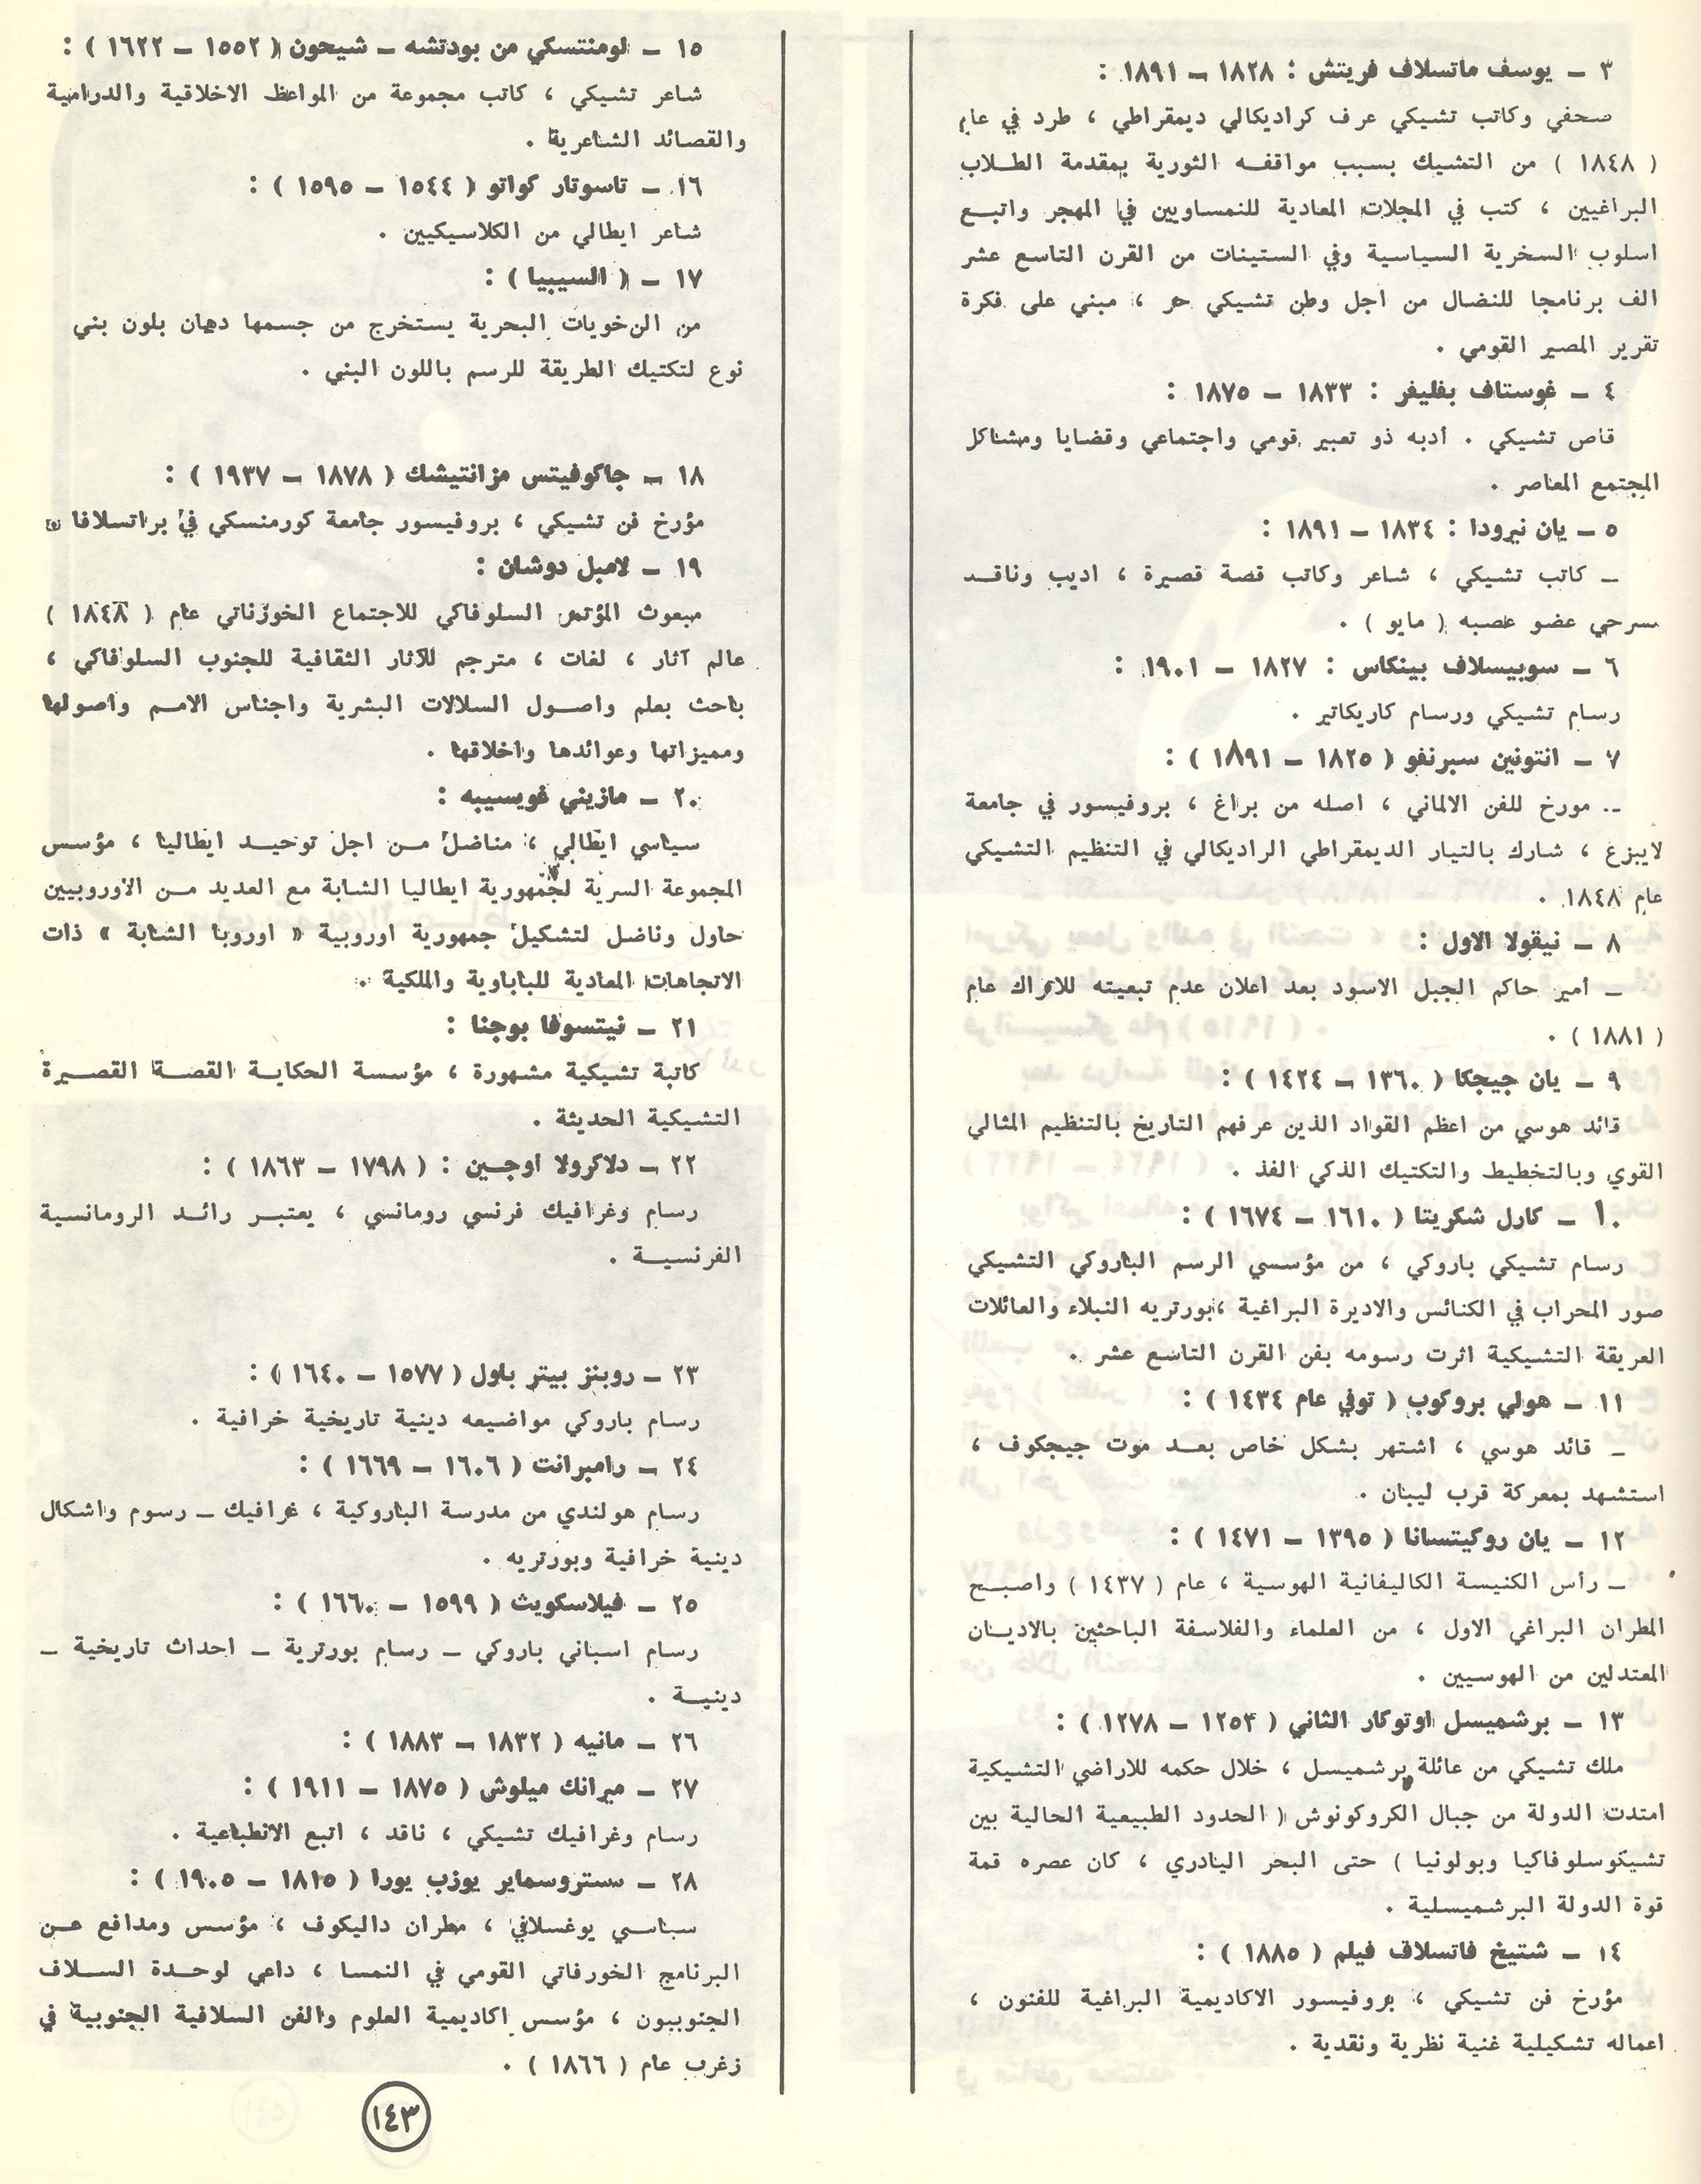 ٣ ـ يوسف ماتسلاف فريتش : ١٨٢٨ ـ ١٨٩١ :
صحفي وكاتب تشيكي عرف كراديكالي ديمقراطي ، طرد في عام
( ١٨٤٨ ) من التشيك بسبب مواقفه الثورية بمقدمة الطلاب
البراغيين ، كتب في المجلات المعادية للنمساويين في المهجر واتبع
اسلوب السخرية السياسية وفي الستينات من القرن التاسع عشر
الف برنامجا للنضال من اجل وطن تشيكي حر ، مبني على فكرة
تقرير المصير القومي .
٤ ـ غوستاف بفليفر : ١٨٣٣ ـ ١٨٧٥ :
قاص تشيكي . أدبه ذو تعبير قومي واجتماعي وقضايا ومشاكل
المجتمع المعاصر .
٥ ـ يان نيرودا : ١٨٣٤ ـ ١٨٩١ :
ـ كاتب تشيكي ، شاعر وكاتب قصة قصيرة ، اديب وناقد
مسرحي عضو عصبه ( مايو ) .
٦ ـ سوبيسلاف بينكاس : ١٨٢٧ ـ ١٩٠١ :
رسام تشيكي ورسام كاريكاتير .
٧ ـ انتونين سبرنفو ( ١٨٢٥ ـ ١٨٩١ ) :
ـ مورخ للفن الالماني ، اصله من براغ ، بروفيسور في جامعة
لايبزغ ، شارك بالتيار الديمقراطي الراديكالي في التنظيم التشيكي
عام ١٨٤٨ .
٨ ـ نيقولا الاول :
ـ أمير حاكم الجبل الاسود بعد اعلان عدم تبعيته للاتراك عام
( ١٨٨١ ) .
٩ ـ يان جيجكا ( ١٣٦٠ ـ ١٤٢٤ ) :
قائد هوسي من اعظم القواد الذين عرفهم التاريخ بالتنظيم المثالي
القوي وبالتخطيط والتكتيك الذكي الفذ .
١٠ ـ كارل شكريتا ( ١٦١٠ ـ ١٦٧٤ ) :
رسام تشيكي باروكي ، من مؤسسي الرسم الباروكي التشيكي
صور المحراب في الكنائس والاديرة البراغية ، بورتريه النبلاء والعائلات
العريقة التشيكية اثرت رسومه بفن القرن التاسع عشر .
١١ ـ هولي بروكوب ( توفي عام ١٤٣٤ ) :
ـ قائد هوسي ، اشتهر بشكل خاص بعد موت جيجكوف ،
استشهد بمعركة قرب ليبان .
١٢ ـ يان روكيتسانا ( ١٣٩٥ ـ ١٤٧١ ) :
ـ رأس الكنيسة الكاليفانية الهوسية ، عام ( ١٤٣٧ ) واصبح
المطران البراغي الاول ، من العلماء والفلاسفة الباحثين بالاديان
المعتدلين من الهوسيين .
١٣ ـ برشميسل اوتوكار الثاني ( ١٢٥٣ ـ ١٢٧٨ ) :
ملك تشيكي من عائلة برشميسل ، خلال حكمه للاراضي التشيكية
امتدت الدولة من جبال الكروكونوش ( الحدود الطبيعية الحالية بين
تشيكوسلوفاكيا وبولونيا ) حتى البحر اليادري ، كان عصره قمة
قوة الدولة البرشميسلية .
١٤ ـ شتيخ فاتسلاف فيلم ( ١٨٨٥ ) :
مؤرخ فن تشيكي ، بروفيسور الاكاديمية البراغية للفنون ،
اعماله تشكيلية غنية نظرية ونقدية .
١٥ ـ لومنتسكي من بودتشه ـ شيحون ( ١٥٥٢ ـ ١٦٢٢ ) :
شاعر تشيكي ، كاتب مجموعة من المواعظ الاخلاقية والدرامية
والقصائد الشاعرية .
١٦ ـ تاسوتار كواتو ( ١٥٤٤ ـ ١٥٩٥ ) :
شاعر ايطالي من الكلاسيكيين .
١٧ ـ ( السيبيا ) :
من الرخويات البحرية يستخرج من جسمها دهان بلون بني
نوع لتكتيك الطريقة للرسم باللون البني .
١٨ ـ جاكوفيتس مزانتيشك ( ١٨٧٨ ـ ١٩٣٧ ) :
مؤرخ فن تشيكي ، بروفيسور جامعة كورمنسكي في براتسلافا
١٩ ـ لامبل دوشان :
مبعوث المؤتمر السلوفاكي للاجتماع الخورناتي عام ( ١٨٤٨ )
عالم آثار ، لغات ، مترجم للآثار الثقافية للجنوب السلوفاكي ،
باحث بعلم واصول السلالات البشرية واجناس الامم واصولها
ومميزاتها وعوائدها واخلاقها .
٢٠ ـ مازيني غويسيبه :
سياسي ايطالي ، مناضل من اجل توحيد ايطاليا ، مؤسس
المجموعة السرية لجمهورية ايطاليا الشابة مع العديد من الاوروبيين
حاول وناضل لتشكيل جمهورية اوروبية « اوروبا الشابة » ذات
الاتجاهات المعادية للباباوية والملكية .
٢١ ـ نيتسوفا بوجنا :
كاتبة تشيكية مشهورة ، مؤسسة الحكاية القصة القصيرة
التشيكية الحديثة .
٢٢ ـ دلاكرولا أوجين : ( ١٧٩٨ ـ ١٨٦٣ ) :
رسام وغرافيك فرنسي رومانسي ، يعتبر رائد الرومانسية
الفرنسية .
٢٣ ـ روبنز بيتر باول ( ١٥٧٧ ـ ١٦٤٠ ) :
رسام باروكي مواضيعه دينية تاريخية خرافية .
٢٤ ـ رامبرانت ( ١٦٠٦ ـ ١٦٦٩ ) :
رسام هولندي من مدرسة الباروكية ، غرافيك ـ رسوم واشكال
دينية خرافية وبورتريه .
٢٥ ـ فيلاسكويث ( ١٥٩٩ ـ ١٦٦٠ ) :
رسام اسباني باروكي ـ رسام بورترية ـ احداث تاريخية ـ
دينية .
٢٦ ـ مانيه ( ١٨٣٢ ـ ١٨٨٣ ) :
٢٧ ـ ميرانك ميلوش ( ١٨٧٥ ـ ١٩١١ ) :
رسام وغرافيك تشيكي ، ناقد ، اتبع الانطباعية .
٢٨ ـ ستروسماير يوزب يورا ( ١٨١٥ ـ ١٩٠٥ ) :
سياسي يوغسلافي ، مطران داليكوف ، مؤسس ومدافع عن
البرنامج الخورفاتي القومي في النمسا ، داعي لوحدة السلاف
الجنوبيون ، مؤسس اكاديمية العلوم والفن السلافية الجنوبية في
زغرب عام ( ١٨٦٦ ) .
١٤٣